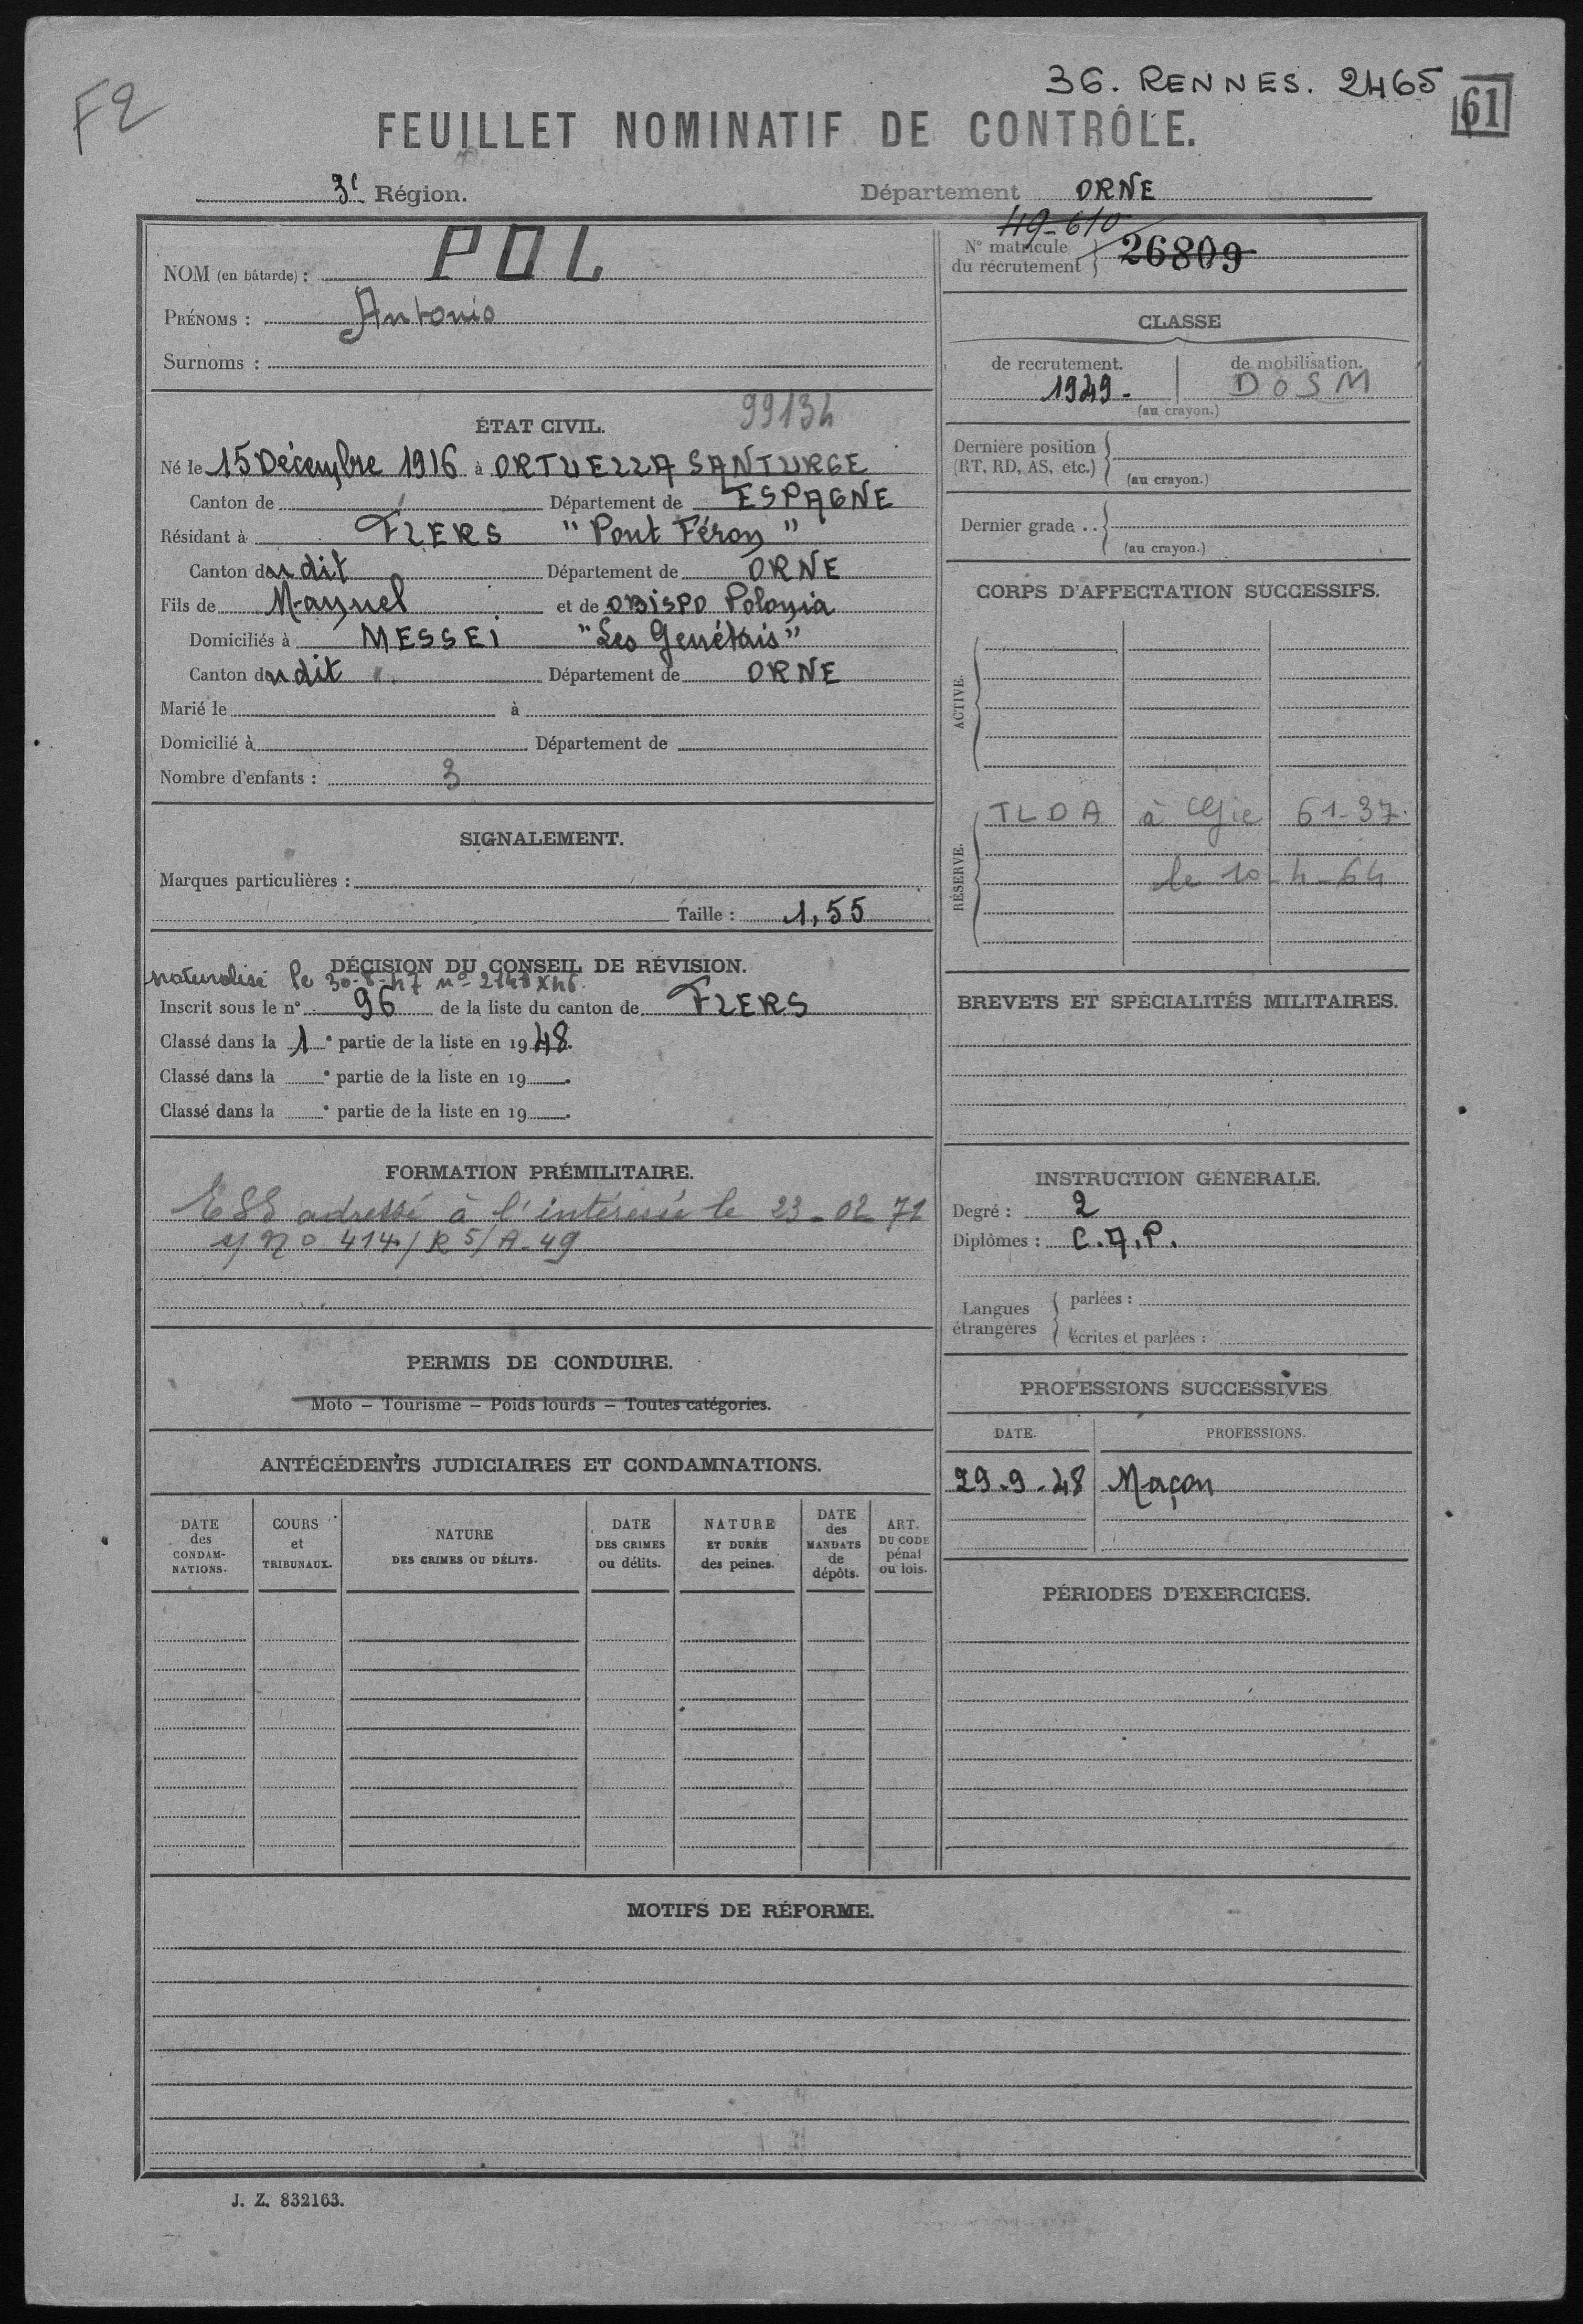 F2
36. RENNES. 2465
61
FEUILLET NOMINATIF DE CONTRÔLE.
3e Région.
Département ORNE
NOM (en bâtarde) : POL
PRÉNOMS : Antonio
Surnoms :
ÉTAT CIVIL.
99134
Né le 15 Décembre 1916 à ORTUELLA SANTURGE
Canton de Département de ESPAGNE
Résidant à FLERS "Pont Féron"
Canton du dit Département de ORNE
Fils de Manuel et de OBISPO Polonia
Domiciliés à MESSEI "Les Genétais"
Canton du dit Département de ORNE
Marié le à
Domicilié à Département de
Nombre d'enfants : 3
SIGNALEMENT.
Marques particulières :
Taille : 1,55
DÉCISION DU CONSEIL DE RÉVISION.
naturalisé le 30-8-47 n° 2148X46.
Inscrit sous le n° 96 de la liste du canton de FLERS
Classé dans la 1e partie de la liste en 1948.
Classé dans la e partie de la liste en 19 .
Classé dans la e partie de la liste en 19 .
FORMATION PRÉMILITAIRE.
ESS adressé à l'intéressé le 23-02 71
n° 414/R5/A-49
PERMIS DE CONDUIRE.
Moto – Tourisme – Poids lourds – Toutes catégories.
ANTÉCÉDENTS JUDICIAIRES ET CONDAMNATIONS.
DATE des CONDAM-NATIONS.
COURS et TRIBUNAUX.
NATURE DES CRIMES OU DÉLITS.
DATE DES CRIMES ou délits.
NATURE ET DURÉE des peines.
DATE des MANDATS de dépôts.
ART. DU CODE pénal ou lois.
49-610
N° matricule du recrutement } 26809
CLASSE
de recrutement. de mobilisation.
1949. DOSM
(au crayon.)
Dernière position (RT, RD, AS, etc.)
(au crayon.)
Dernier grade ..
(au crayon.)
CORPS D'AFFECTATION SUCCESSIFS.
ACTIVE.
RÉSERVE.
TLDA à Gie 61-37.
le 10-4-64
BREVETS ET SPÉCIALITÉS MILITAIRES.
INSTRUCTION GÉNÉRALE.
Degré : 2
Diplômes : C.A.P.
Langues étrangères
parlées :
écrites et parlées :
PROFESSIONS SUCCESSIVES
DATE. PROFESSIONS.
29.9.48 Maçon
PÉRIODES D'EXERCICES.
MOTIFS DE RÉFORME.
J. Z. 832163.